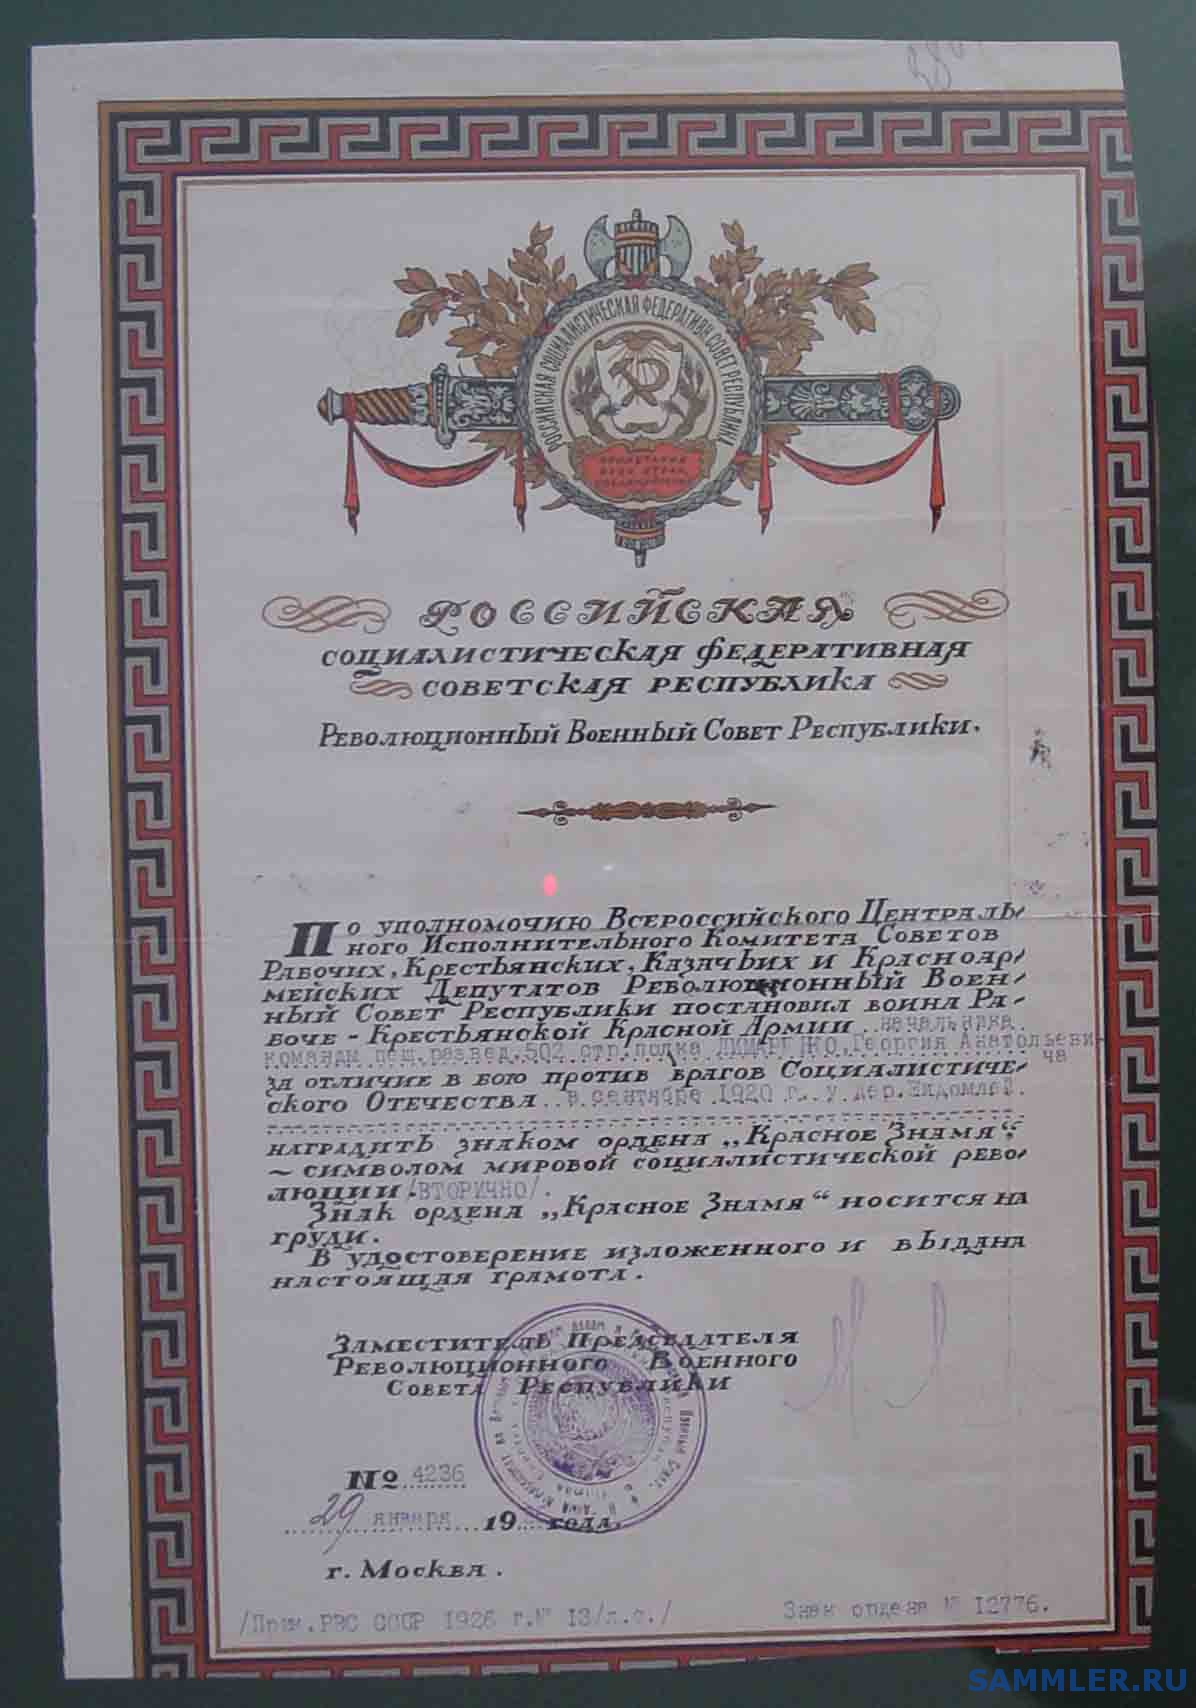 РОССИЙСКАЯ СОЦИАЛИСТИЧЕСКАЯ ФЕДЕРАТИВН СОВЕТ РЕСПУБЛИКА
РОССИЙСКАЯ
СОЦИАЛИСТИЧЕСКАЯ ФЕДЕРАТИВНАЯ
СОВЕТСКАЯ РЕСПУБЛИКА
РЕВОЛЮЦИОННЫЙ ВОЕННЫЙ СОВЕТ РЕСПУБЛИКИ.
ПО УПОЛНОМОЧИЮ ВСЕРОССИЙСКОГО ЦЕНТРАЛЬ-
НОГО ИСПОЛНИТЕЛЬНОГО КОМИТЕТА СОВЕТОВ
РАБОЧИХ, КРЕСТЬЯНСКИХ, КАЗАЧЬИХ И КРАСНОАР-
МЕЙСКИХ ДЕПУТАТОВ РЕВОЛЮЦИОННЫЙ ВОЕН-
НЫЙ СОВЕТ РЕСПУБЛИКИ ПОСТАНОВИЛ ВОИНА РА-
БОЧЕ-КРЕСТЬЯНСКОЙ КРАСНОЙ АРМИИ начальника
команды пеш.развед.502 стр.полка Георгия Анатольеви-
ча
ЗА ОТЛИЧИЕ В БОЮ ПРОТИВ ВРАГОВ СОЦИАЛИСТИЧЕ-
СКОГО ОТЕЧЕСТВА в сентябре 1920 г. у дер.
НАГРАДИТЬ ЗНАКОМ ОРДЕНА „КРАСНОЕ ЗНАМЯ“
- СИМВОЛОМ МИРОВОЙ СОЦИАЛИСТИЧЕСКОЙ РЕВО-
ЛЮЦИИ /ВТОРИЧНО/.
ЗНАК ОРДЕНА „КРАСНОЕ ЗНАМЯ“ НОСИТСЯ НА
ГРУДИ.
В УДОСТОВЕРЕНИЕ ИЗЛОЖЕННОГО И ВЫДАНА
НАСТОЯЩАЯ ГРАМОТА.
ЗАМЕСТИТЕЛЬ ПРЕДСЕДАТЕЛЯ
РЕВОЛЮЦИОННОГО ВОЕННОГО
СОВЕТА РЕСПУБЛИКИ
№ 4236
29 января 19 ГОДА.
г. МОСКВА.
/Прик.РВС СССР 1926 г.№ 13/л.с./
Знак ордена № 12776.
SAMMLER.RU